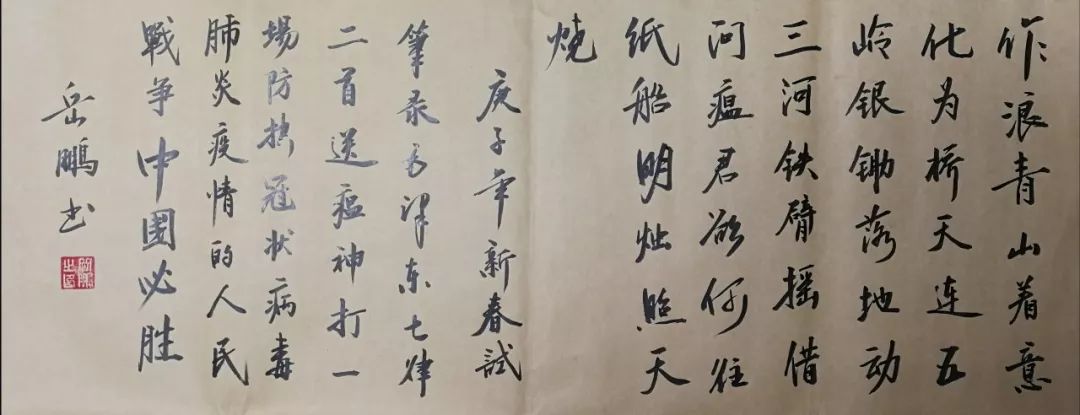 作浪青山着意
化为桥天连五
岭银锄落地动
三河铁臂摇借
问瘟君欲何往
纸船明烛照天
烧
庚子年新春試
筆录毛泽东七律
二首送瘟神打一
場防控冠状病毒
肺炎疫情的人民
戰争中國必胜
岳鵬书